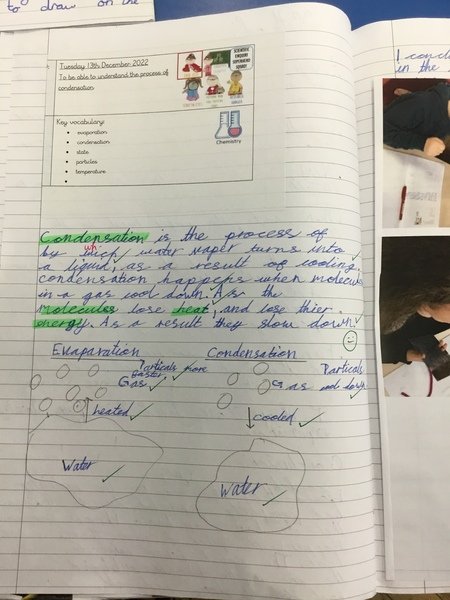 to draw on the
Tuesday 13th December 2022
To be able to understand the process of
condensation.
SCIENTIFIC
ENQUIRY
SUPERHERO
SQUAD!
Chemistry
Key vocabulary:
evaporation
condensation
state
particles
temperature
I cond
in the
Condensation is the process of
by wich wh water vaper turns into
a liquid, as a result of cooling.
condensation happens when molecul
in a gas cool down. A/s the
Molecules lose heat, and lose thier
energy. As a result they slow down.
Evaparation
Condensation
Particals more
Easter
Gas
Particals
Gas cool down
heated
cooled
Water
Water